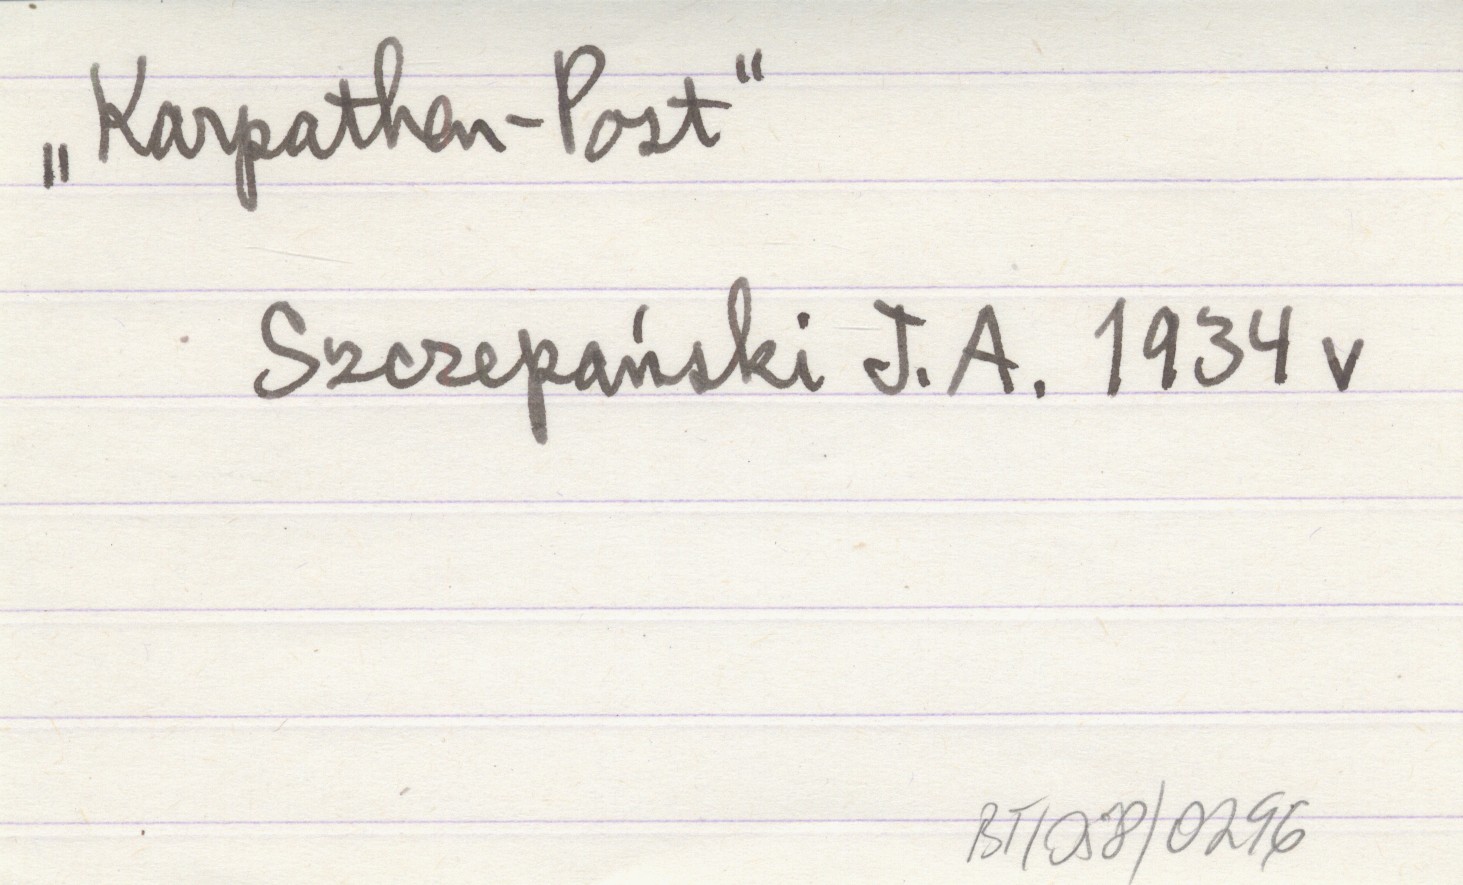 „Karpathen-Post“
Szczepański J.A. 1934 v
BT/058/0296